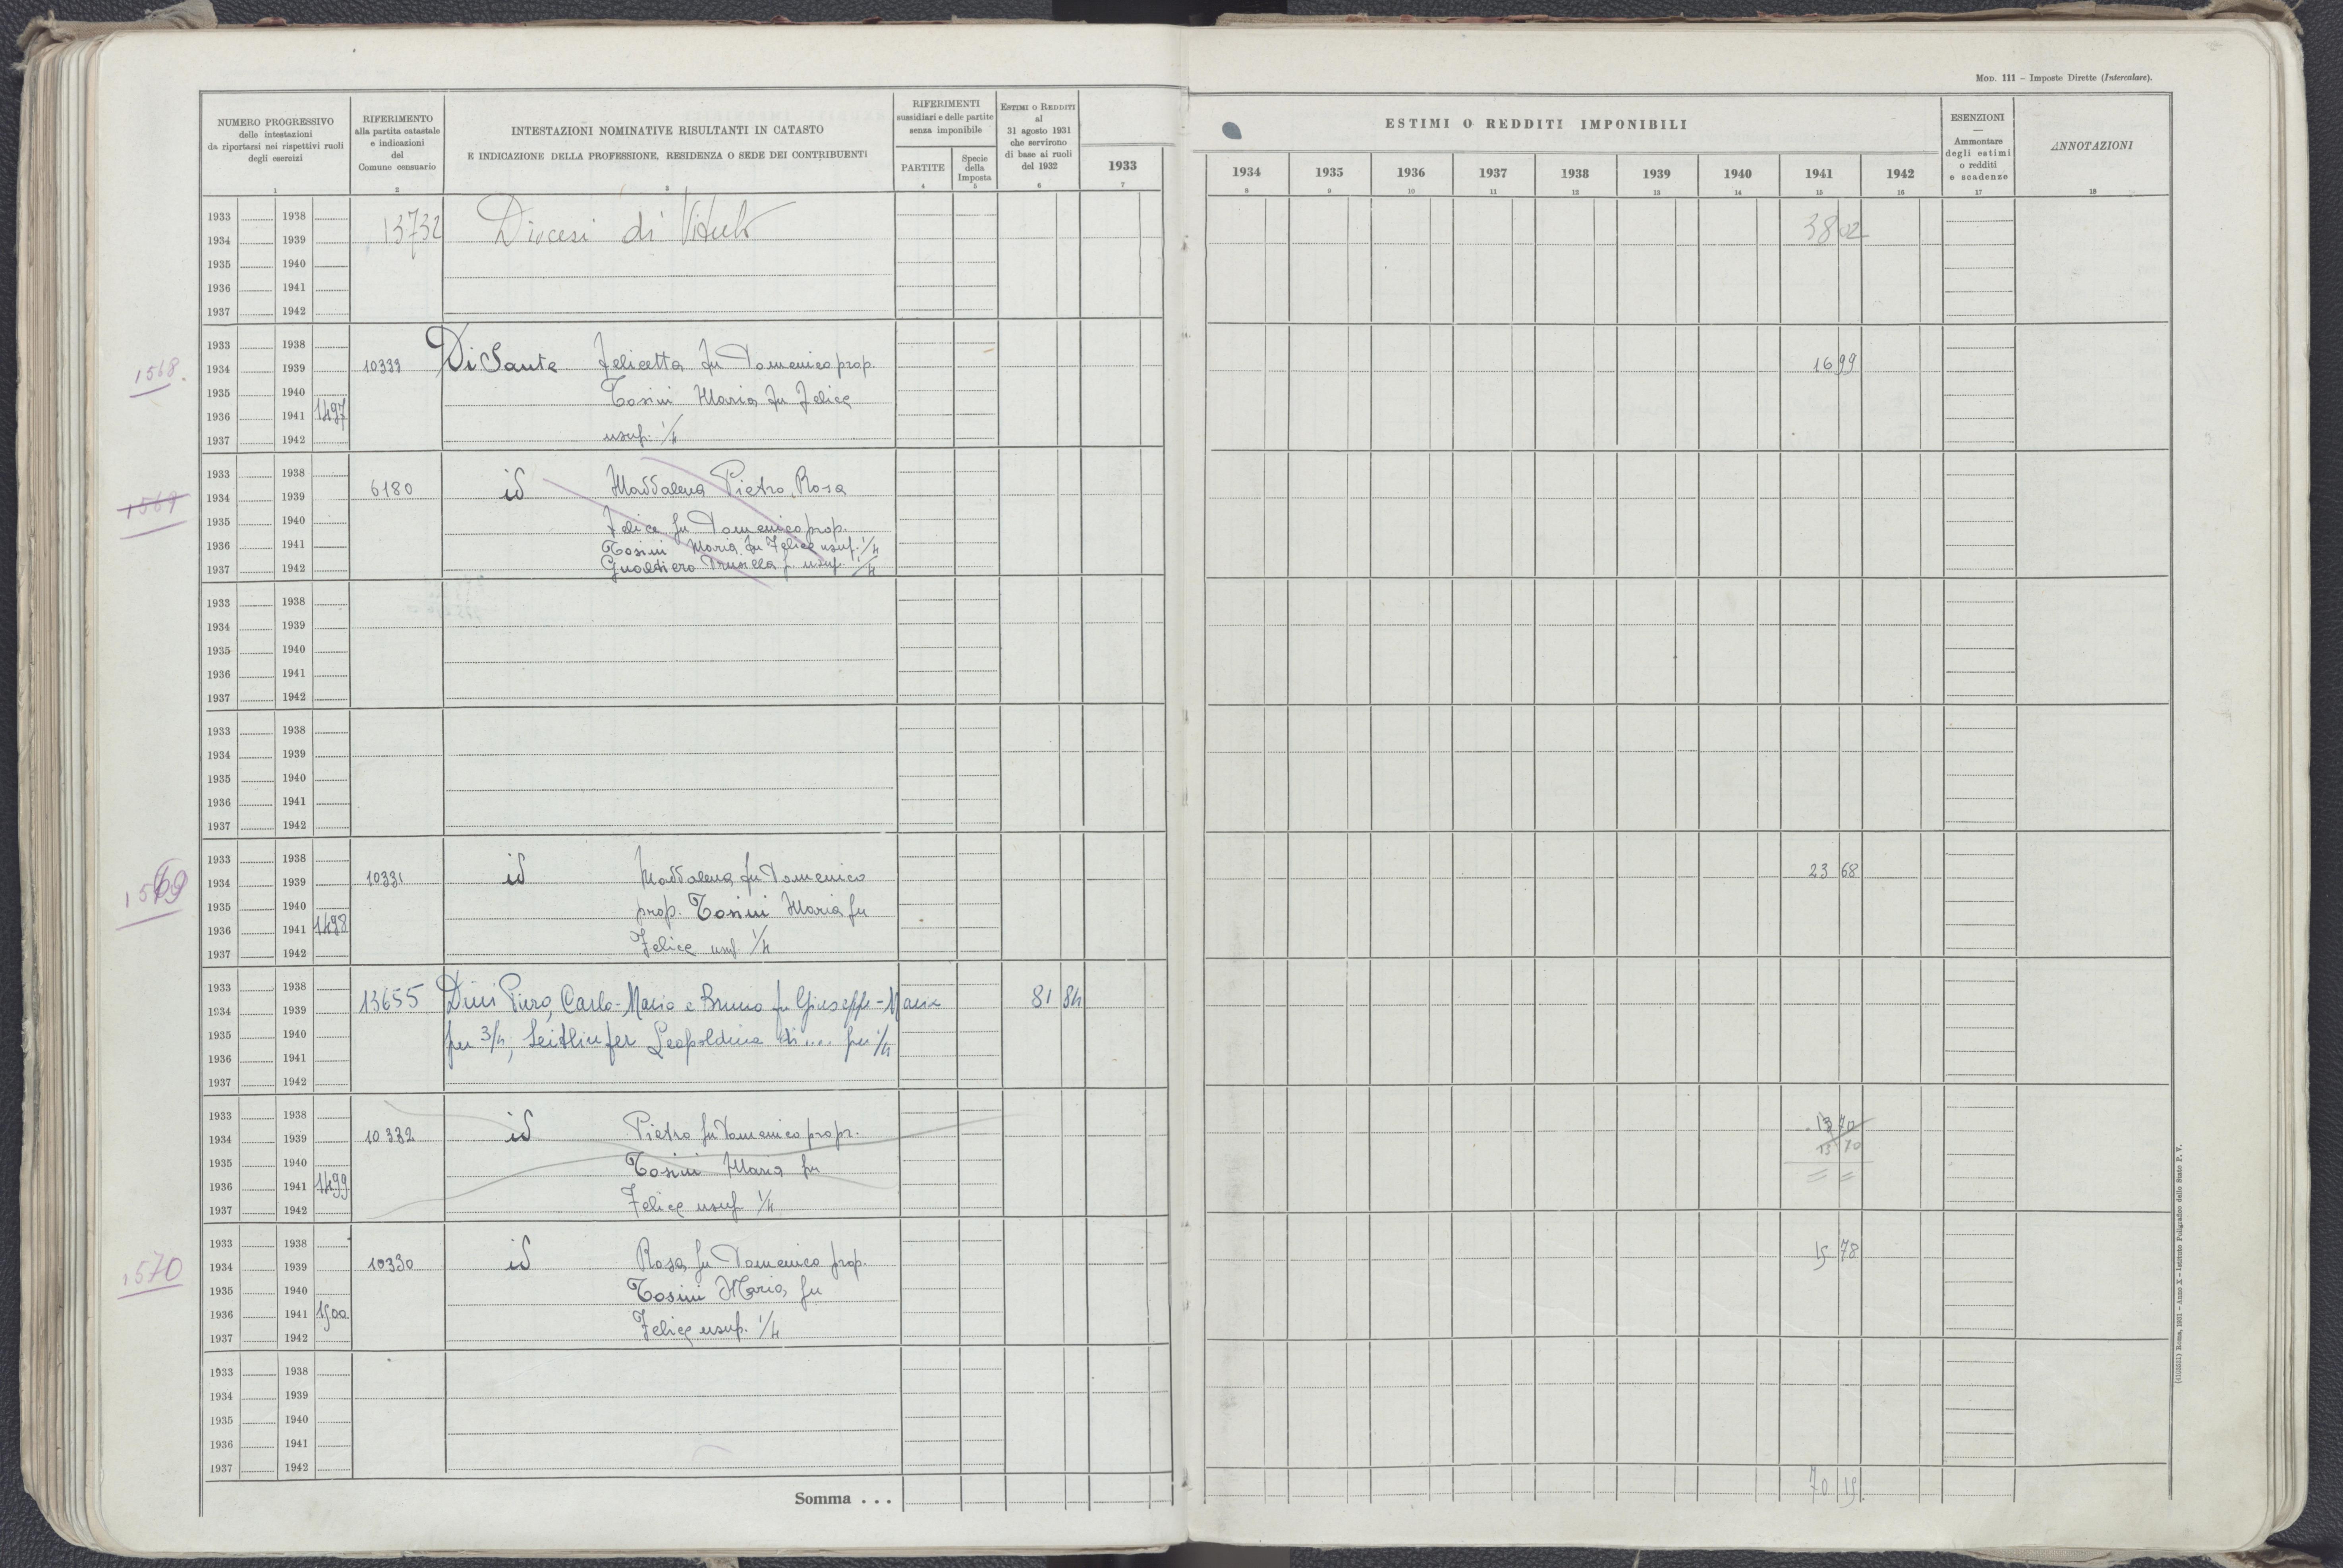 MOD. 111 – Imposte Dirette (Intercalare).
NUMERO PROGRESSIVO
delle intestazioni
da riportarsi nei rispettivi ruoli
degli esercizi
1
RIFERIMENTO
alla partita catastale
e indicazioni
del
Comune censuario
2
INTESTAZIONI NOMINATIVE RISULTANTI IN CATASTO
E INDICAZIONE DELLA PROFESSIONE, RESIDENZA O SEDE DEI CONTRIBUENTI
3
RIFERIMENTI
sussidiari e delle partite
senza imponibile
PARTITE
4
Specie
della
Imposta
5
ESTIMI O REDDITI
al
31 agosto 1931
che servirono
di base ai ruoli
del 1932
6
ESTIMI O REDDITI IMPONIBILI
1933 1934 1935 1936 1937 1938 1939 1940 1941 1942
7 8 9 10 11 12 13 14 15 16
ESENZIONI
—
Ammontare
degli estimi
o redditi
e scadenze
17
ANNOTAZIONI
18
1933 1938
13732 Diocesi di 38 02
1934 1939
1935 1940
1936 1941
1937 1942
1933 1938
1568. 1934 1939 10333 Di Sante Felicetta fu Domenico prop. 16 99
1935 1940 Tosini Maria fu Felice
1936 1941 1497
1937 1942 usuf. 1/4
1933 1938
1569 1934 1939 6180 id Maddalena Pietro, Rosa
1935 1940 Felice fu Domenico prop.
1936 1941 Tosini Maria fu Felice usuf. 1/4
1937 1942 Gualtiero Drusilla f. usuf. 1/4
1933 1938
1934 1939
1935 1940
1936 1941
1937 1942
1933 1938
1934 1939
1935 1940
1936 1941
1937 1942
1933 1938
1569 1934 1939 10331 id Maddalena fu Domenico 23 68
1935 1940 prop. Tosini Maria fu
1936 1941 1498
1937 1942 Felice usuf 1/4
1933 1938
1934 1939 13655 Dini Piero, Carlo-Maria e Bruno fu Giuseppe-Maria 81 84
1935 1940 per 3/4, Leopoldina di .... per 1/4
1936 1941
1937 1942
1933 1938
1934 1939 10332 id Pietro fu Domenico propr. 13 70
13 70
1935 1940 Tosini Maria fu
1936 1941 1499 = =
1937 1942 Felice usuf 1/4
1933 1938
1570 1934 1939 10330 id Rosa fu Domenico prop. 15 78
1935 1940 Tosini Maria fu
1936 1941 1500
1937 1942 Felice usuf. 1/4
1933 1938
1934 1939
1935 1940
1936 1941
1937 1942
Somma . . . 70 15
(4103531) Roma, 1931 – Anno X – Istituto Poligrafico dello Stato P. V.